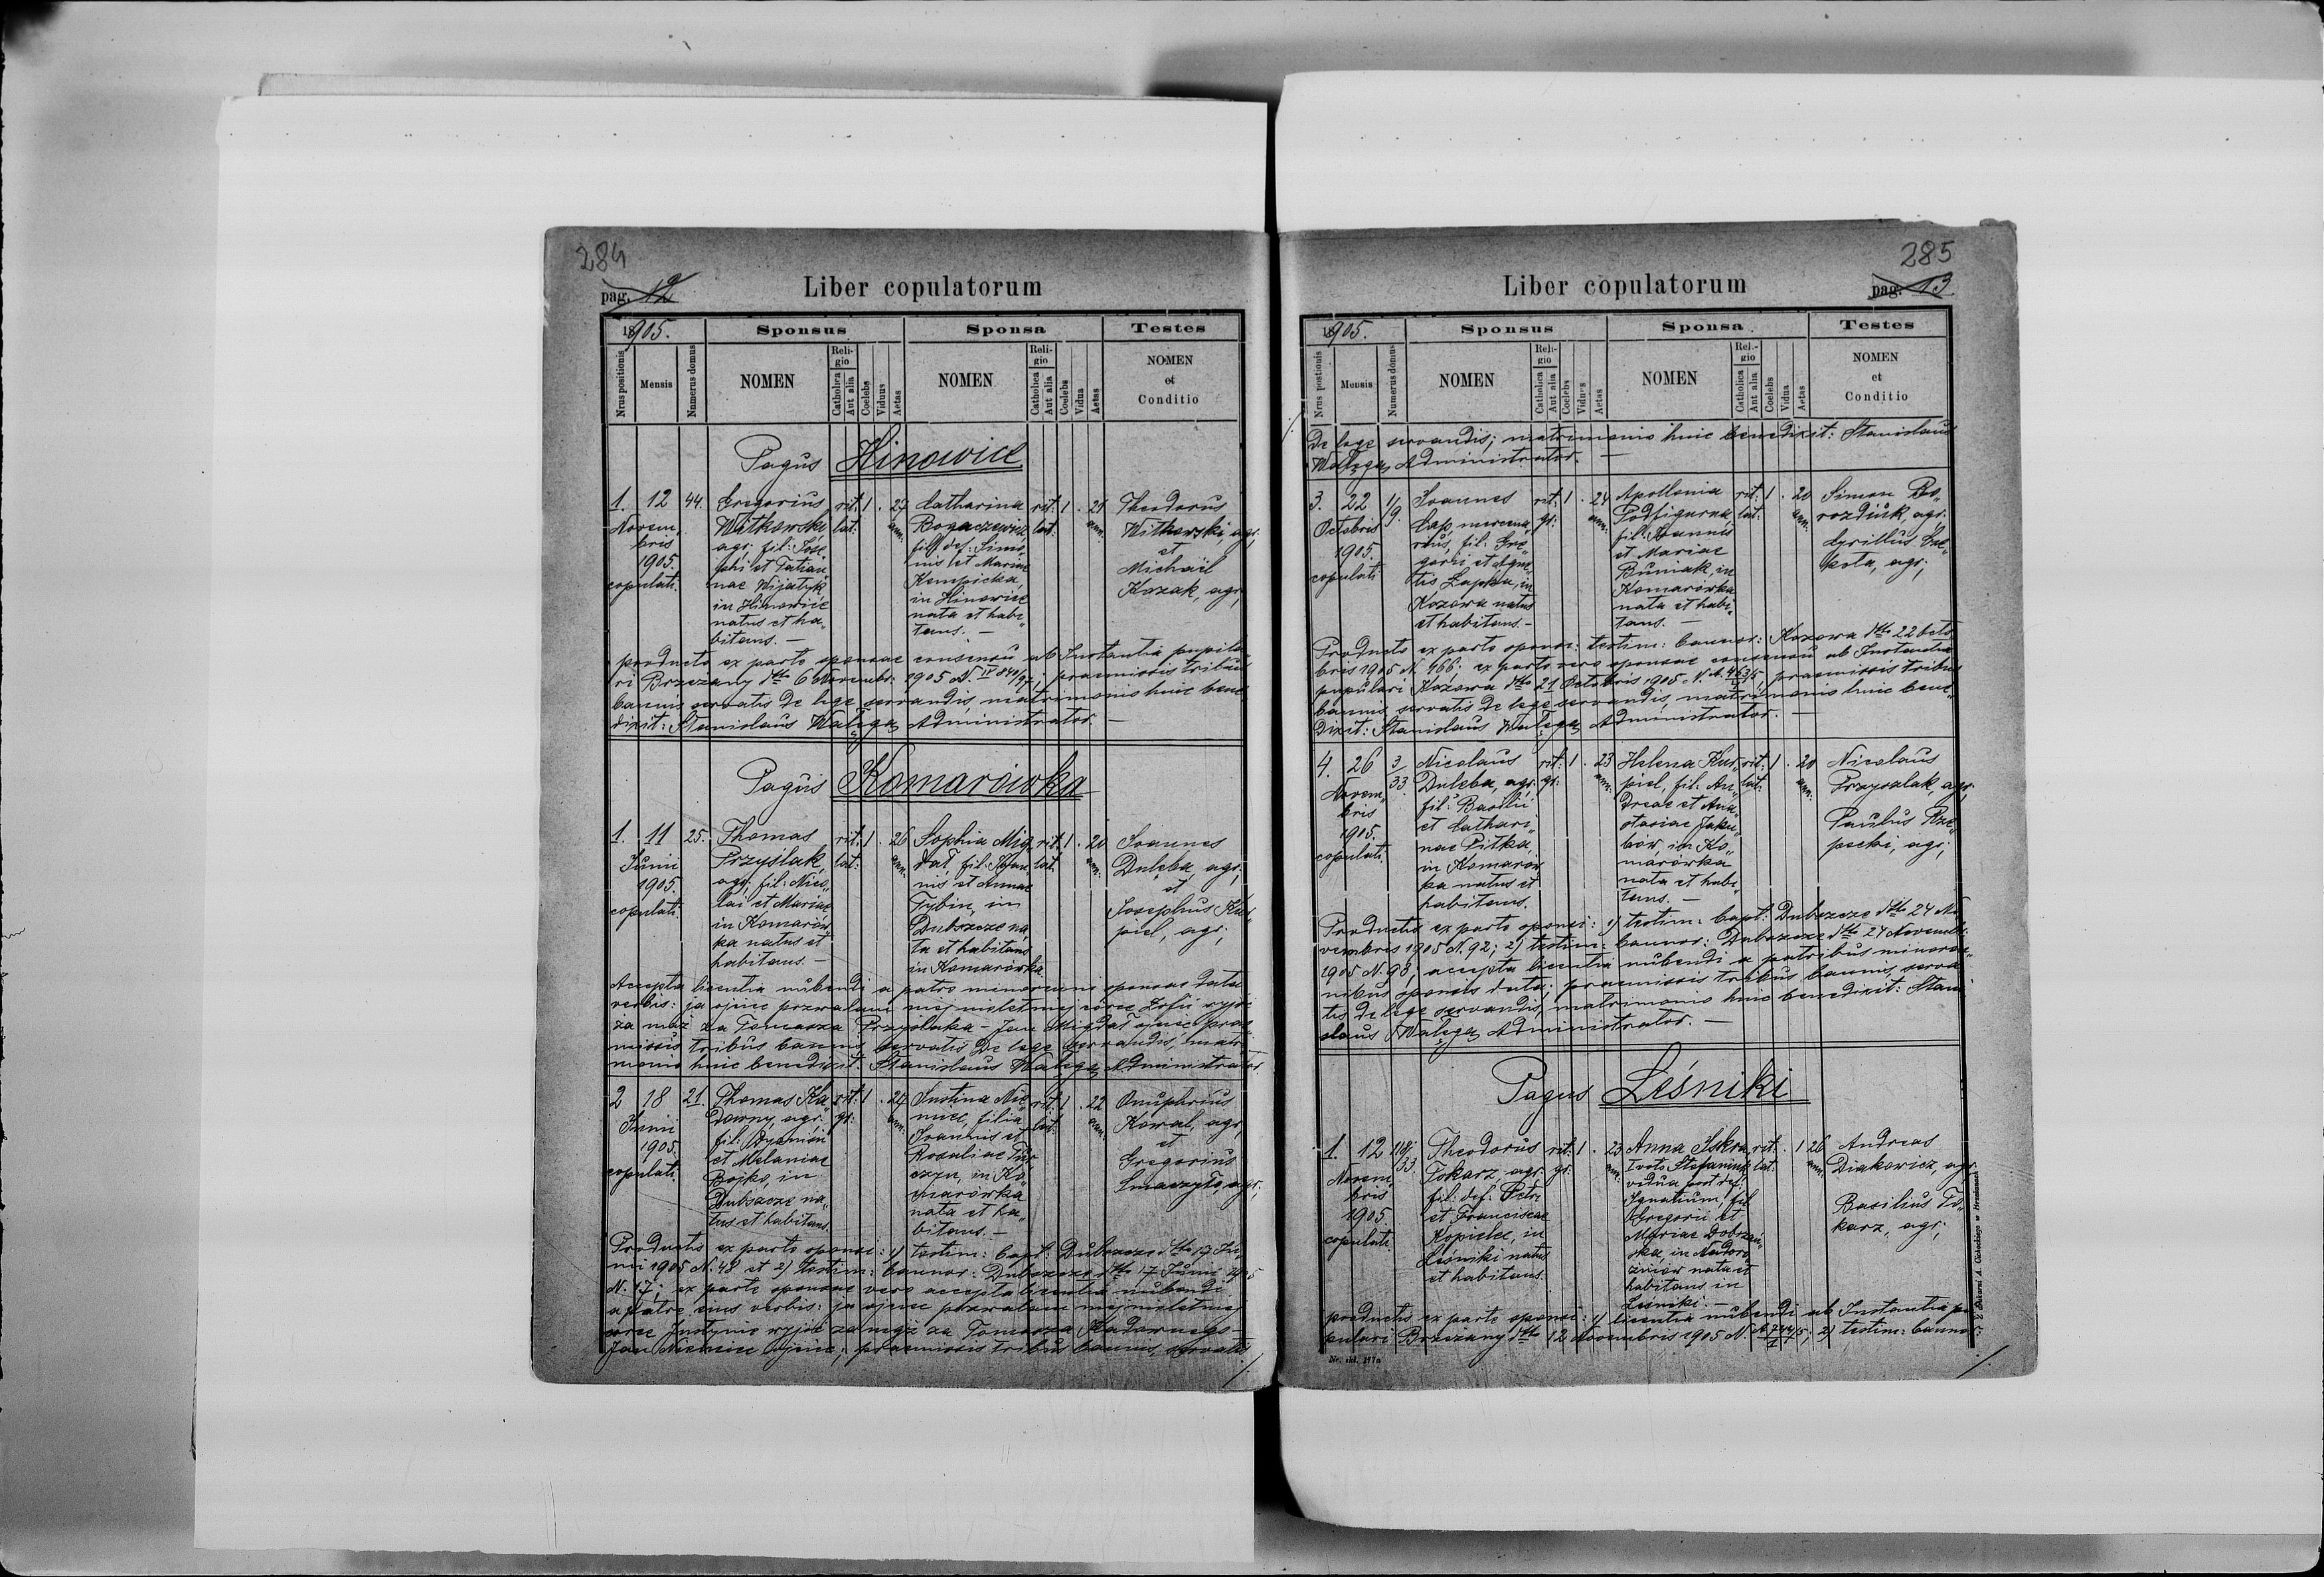 284
pag. 12
Liber copulatorum
18905.
Sponsus
Sponsa
Testes
Nrus positionis
Mensis
Numerus domus
NOMEN
Religio
Catholica
Aut alia
Coelebs
Viduus
Aetas
NOMEN
Religio
Catholica
Aut alia
Coelebs
Vidua
Aetas
NOMEN
et
Conditio
Pagus Hinowice
1. 12 44.
Novem„
bris
1905.
copulati.
Gregorius
Witkowski
agr. fil: Jose„
phi et Tatian„
nae Wijatyk
in Hinowice
natus et ha„
bitans. —
rit: 1 . 27
lat: ann:
Catharina
Bogaczewicz
fil: def: Simo„
nis et Mariae
Kempicka,
in Hinowice
nata et habi„
tans. —
rit: 1 . 21
lat: ann:
Theodorus
Witkowski, agr;
et
Michaël
Kozak, agr;
producto ex parte sponsae consensu ab Instantia pupila„
ri Brzezany dtto 6 Novembr: 1905 N. IV 841/97; praemissis tribus
bannis servatis de lege servandis, matrimonio huic bene„
dixit: Stanislaus Wałęga Administrator. —
Pagus Komarówka
1. 11 25.
Junii
1905.
copulati.
Thomas
Przyślak,
agr. fil: Nico„
lai et Mariae
in Komarów„
ka natus et
habitans. —
rit: 1 . 26
lat: ann:
Sophia Mig„
dał, fil: Joan„
nis et Annae
Tybin, in
Dubszcze na„
ta et habitans
in Komarówka
rit: 1 . 20
lat: ann:
Joannes
Dulęba, agr;
et
Josephus Kur„
piel, agr;
Accepta licentia nubendi a patre minorenni sponsae data
verbis: ja ojciec pozwalam mej nieletniej córce Zofii wyjść
za mąż za Tomasza Przyślaka – Jan Migdał ojciec prae„
missis tribus bannis servatis de lege servandis, matri„
monio huic benedixit: Stanislaus Wałęga Administrator.
2 18 21.
Junii
1905.
copulati.
Thomas Ka„
downy, agr.
et Melaniae
Bojko, in
Dubszcze na„
tus et habitans.
rit: 1 . 27
gr: ann:
Justina Nie„
miec, filia
Joannis et
Rosaliae Tur„
czyn, in Ko„
marówka
nata et ha„
bitans. —
rit: 1 . 22
lat: ann:
Onuphrius
Kowal, agr;
et
Gregorius
Smaczyło, agr;
Productis ex parte sponsi: 1) testim: bapt: Dubszcze dtto 17 Ju„
nii 1905 N. 48 et 2) testim: bannor: Dubszcze dtto 17 Junii 1905
N. 47; ex parte sponsae vero accepta licentia nubendi
a patre eius verbis: ja ojciec pozwalam mej nieletniej
córce Justynie wyjść za mąż za Tomasza Kadownego –
Jan Niemiec ojciec; praemissis tribus bannis, servatis
285
pag. 13
Liber copulatorum
18905.
Sponsus
Sponsa
Testes
Nrus postionis
Mensis
Numerus domus
NOMEN
Religio
Catholica
Aut alia
Coelebs
Viduus
Aetas
NOMEN
Religio
Catholica
Ant alia
Coelebs
Vidua
Aetas
NOMEN
et
Conditio
de lege servandis; matrimonio huic benedixit: Stanislaus
Wałęga Administrator. —
3. 22 11/9
Octobris
1905.
copulati
Joannes
Łap, mercena„
rius, fil: Gre„
gorii et Agne„
tis Łapka, in
Kozowa natus
et habitans. –
rit: 1 . 24
gr: ann:
Apollonia
Podfigurna,
fil: Joannis
et Mariae
Buniak, in
Komarówka
nata et habi„
tans. —
rit: 1 . 20
lat: ann:
Simon Bo„
rozdiuk, agr;
Cyrillus
agr;
Producto ex parte sponsi: testim: bannor: Kozowa dtto 22 Octo„
bris 1905 N. 466; ex parte vero sponsae consensu ab Instantia
pupilari Kozowa dtto 21 Octobris 1905 praemissis tribus
bannis, servatis de lege servandis, matrimonio huic bene„
dixit: Stanislaus Wałęga Administrator. —
4. 26 3/33
Novem„
bris
1905.
copulati.
Nicolaus
Dulęba, agr;
fil: Basilii
et Cathari„
nae Pitka,
in Komarów„
ka natus et
habitans.
rit: 1 . 23
gr: ann:
Helena Kur„
piel, fil: An„
dreae et Ana„
stasiae Jaku„
bów, in Ko„
marówka
nata et habi„
tans. —
rit: 1 . 20
lat: ann:
Nicolaus
Przyszlak, agr;
Paulus Rze„
pecki, agr;
Productis ex parte sponsi: 1) testim: bapt: Dubszcze dtto 24 No„
vembris 1905 N. 92; 2) testim: bannor: Dubszcze dtto 27 Novembr:
1905 N. 98; accepta licentia nubendi a patribus minoren„
nibus sponsis data; praemissis tribus bannis, serva„
tis de lege servandis, matrimonio huic benedixit: Stani„
slaus Wałęga Administrator. —
Pagus Leśniki
1. 12
Novem„
bris
1905.
copulati.
Theodorus
Tokarz, agr.
fil: def: Petri
et Franciscae
in
Leśniki natus
et habitans.
rit: 1 . 23
gr: ann:
Anna Iskra
1voto Stefaniuk
vidua post def:
Ignatium, fil
Gregorii et
Mariae Dobrzań„
ska, in Nadoro„
żniów nata et
habitans in
Leśniki. —
rit: . 1 26
lat: ann:
Andreas
Diakowicz, agr.
Basilius To„
karz, agr;
productis ex parte sponsi: 1) licentia nubendi ab Instantia pu„
pulari Brzeżany dtto 12 Novembris 1905 2) testim: bannor:
Nr. skł. 217a